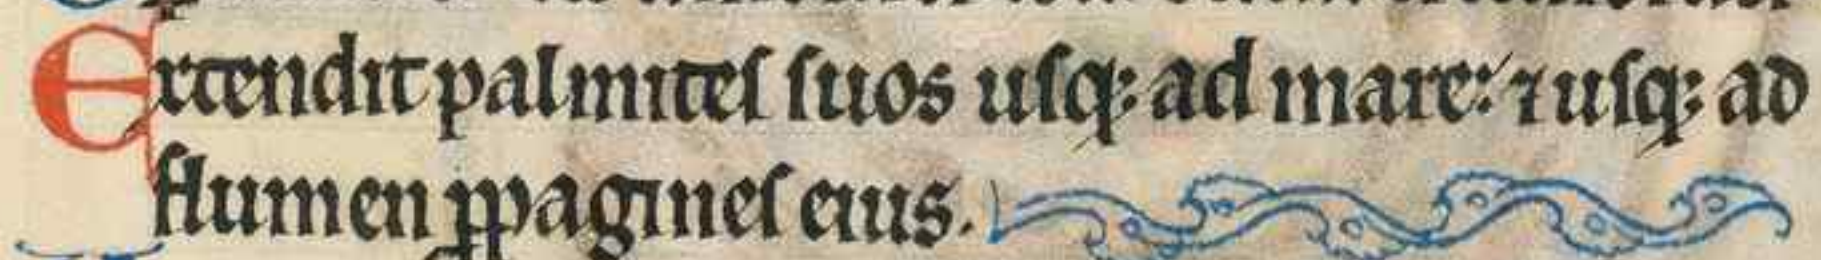 Extendit palmiteſ ſuos uſq; ad mare: ⁊ uſq; ad
flumen ꝓpagineſ eius.